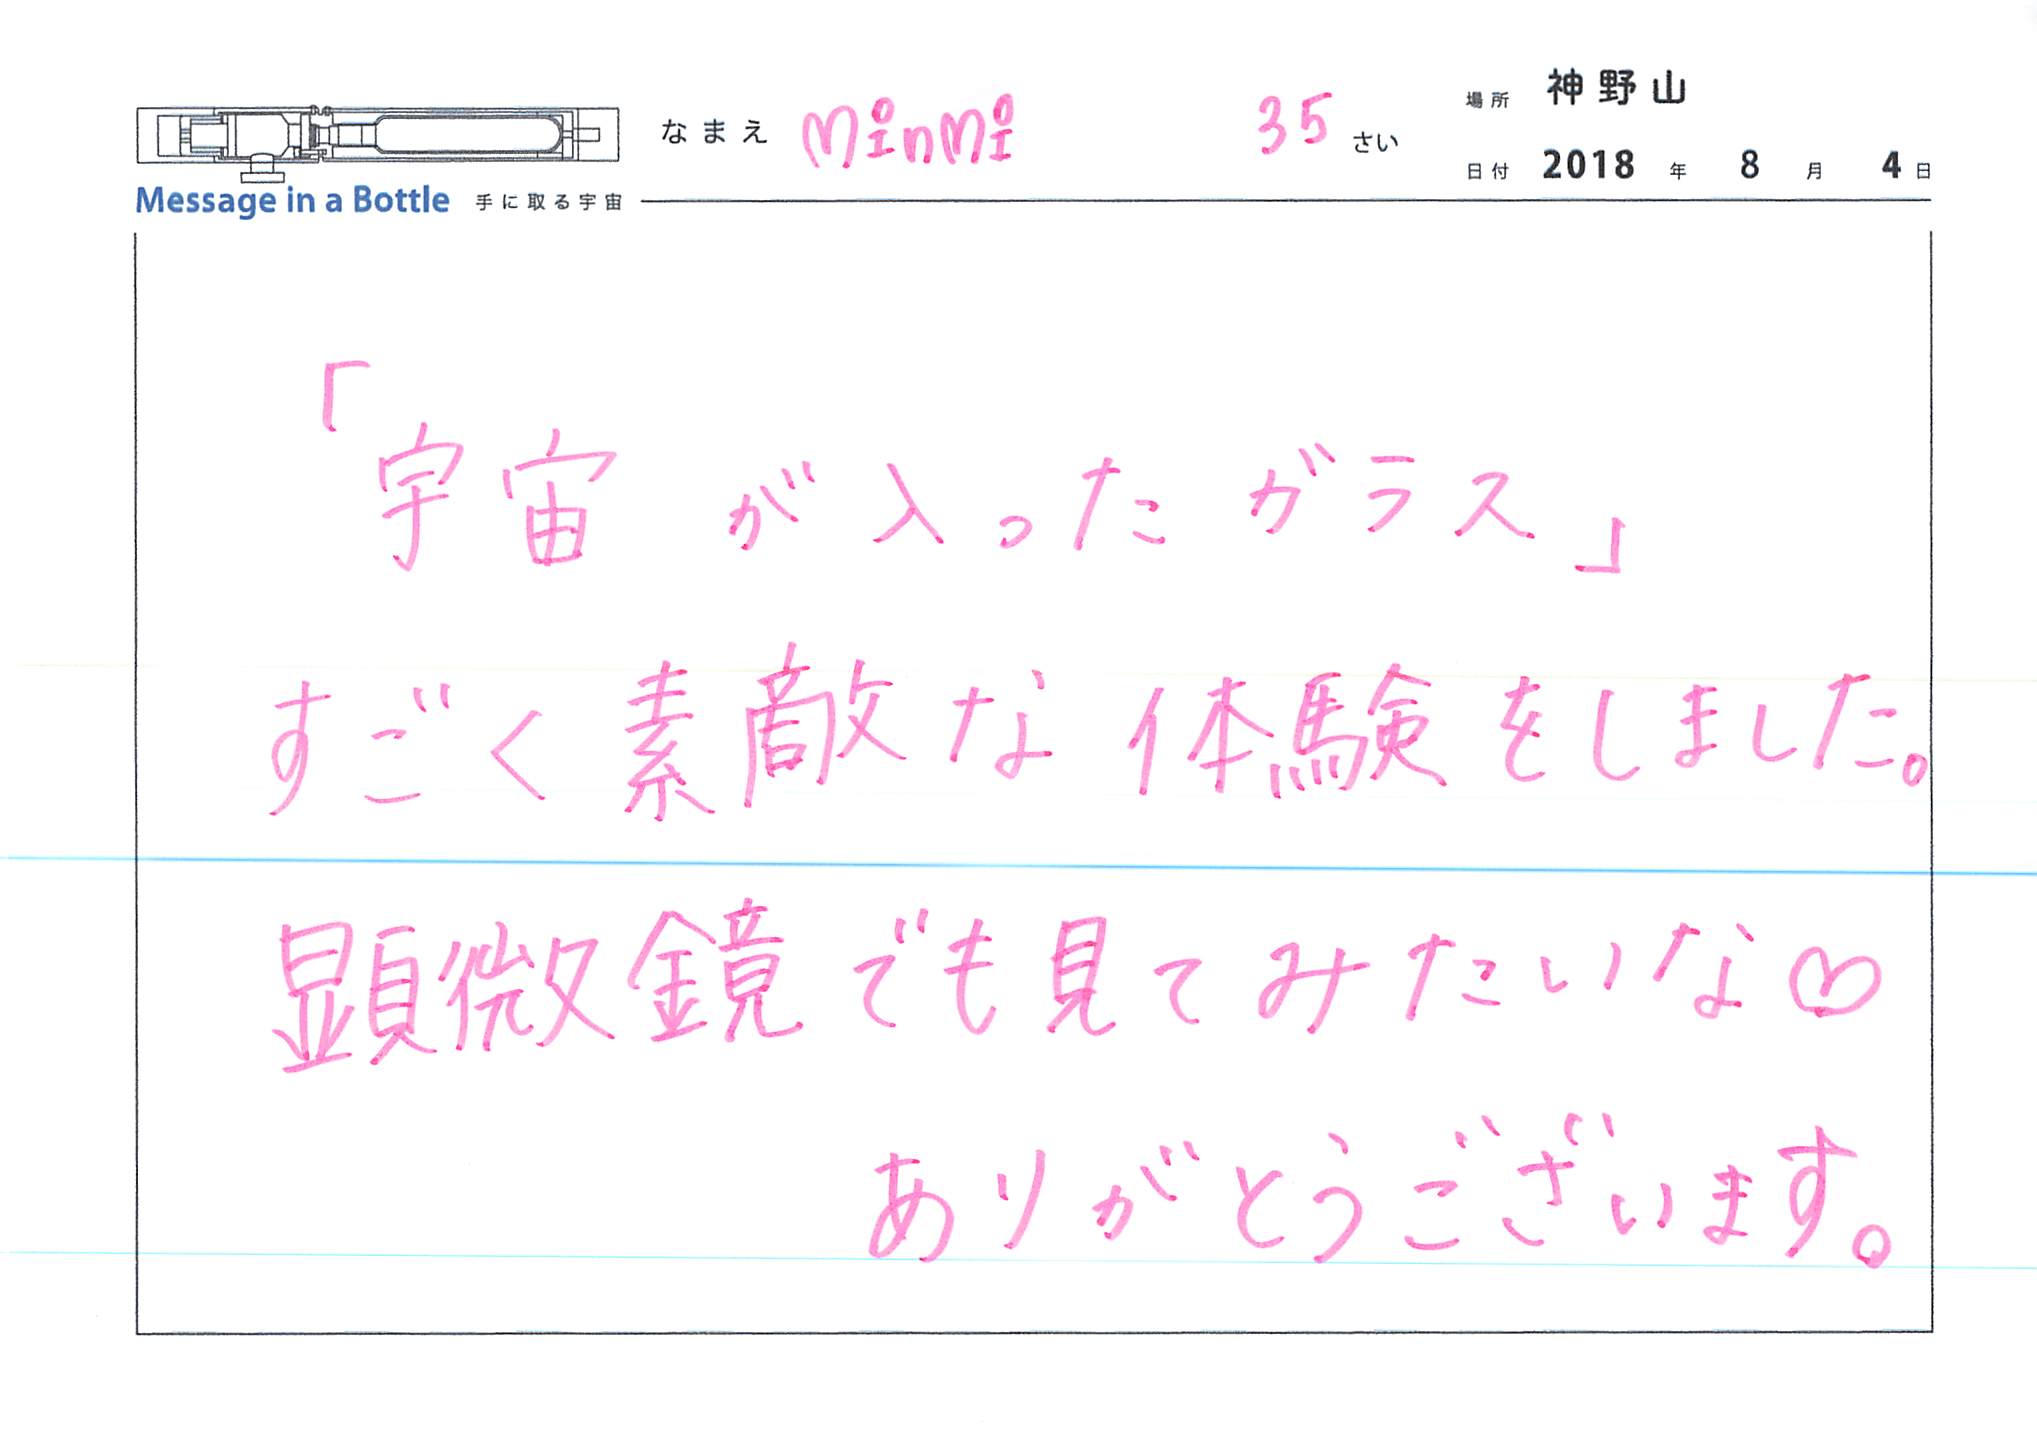 なまえ minmi 35 さい
場所 神野山
日付 2018 年 8 月 4 日
Message in a Bottle 手に取る宇宙
「宇宙が入ったガラス」
すごく素敵な体験をしました。
顕微鏡でも見てみたいな♡
ありがとうございます。